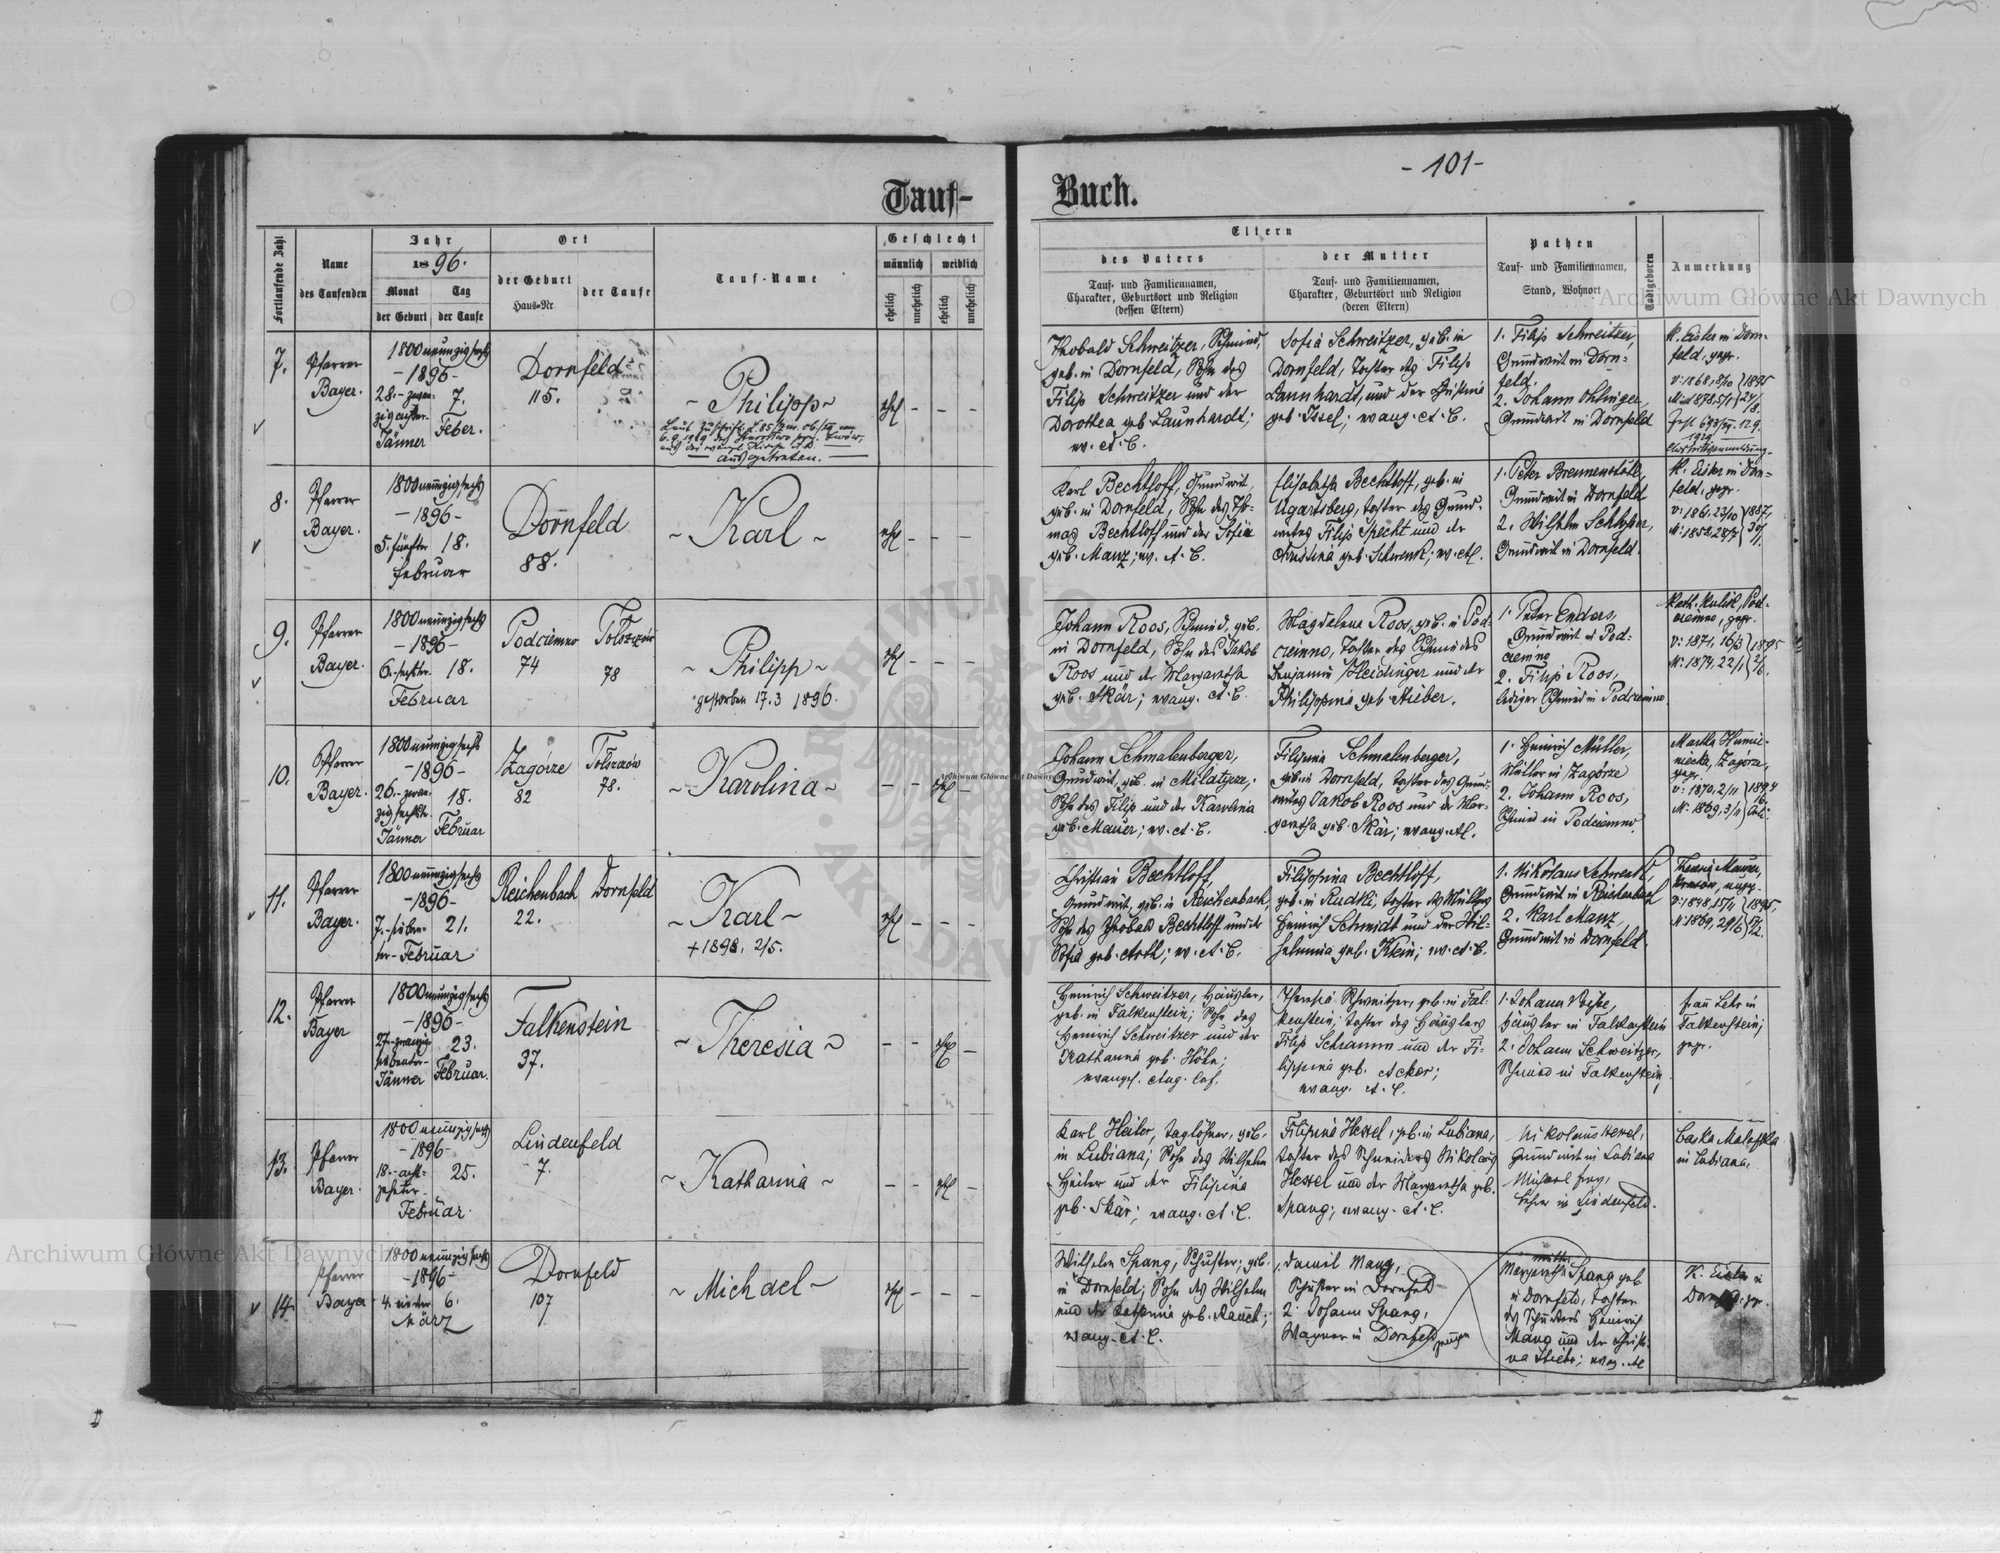 - 101 -
Tauf-Buch.
Fortlaufende Zahl
Name
des Taufenden
Jahr
1896.
Monat
Tag
der Geburt
der Taufe
Ort
der Geburt
Haus-Nr.
der Taufe
Tauf-Name
Geschlecht
männlich
weiblich
ehelich
unehelich
ehelich
unehelich
Eltern
des Vaters
Tauf- und Familiennamen,
Charakter, Geburtsort und Religion
(dessen Eltern)
der Mutter
Tauf- und Familiennamen,
Charakter, Geburtsort und Religion
(deren Eltern)
Pathen
Tauf- und Familiennamen,
Stand, Wohnort
Todtgeboren
Anmerkung
7.
Pfarrer
Bayer.
1800neunzigsechs
- 1896 -
28.
7.
Jänner
Feber.
Dornfeld
115.
~ Philipp ~
ausgetreten.
ehel
- - -
Theobald Schweitzer, Schmied,
geb. in Dornfeld, Sohn des
Filip Schweitzer und der
Dorothea geb. Launhardt;
ev. A. C.
Sofia Schweitzer, geb. in
Dornfeld, Tochter des Filip
Launhardt, und der Christina
geb. Issel; evang. A. C.
1. Filip Schweitzer,
Grundwirt in Dorn-
feld.
2. Johann Ohlinger,
Grundwirt in Dornfeld
K. Eisler in Dorn-
feld, gepr.
8.
Pfarrer
Bayer.
1800neunzigsechs
- 1896 -
5. fünfter
18.
Februar
Dornfeld
88.
~ Karl ~
ehel
- - -
Karl Bechtloff, Grundwirt,
geb. in Dornfeld, Sohn des Tho-
mas Bechtloff und der Sofia
geb. Manz; ev. A. C.
Elisabetha Bechtloff, geb. in
Ugartsberg, Tochter des Grund-
wirtes Filip Specht und der
Christina geb. Schwenk; ev. AC.
1. Peter Brennenstuhl,
Grundwirt in Dornfeld
2. Wilhelm Schlosser,
Grundwirt in Dornfeld.
K. Eisler in Dorn-
feld, gepr.
9.
Pfarrer
Bayer.
1800neunzigsechs
- 1896 -
6. sechster
18.
Februar
Podciemno
74
Tolszczów
78
~ Philipp ~
gestorben 17.3 1896.
ehel
- - -
Johann Roos, Schmied, geb.
in Dornfeld, Sohn des Jakob
Roos und der Margaretha
geb. Skär; evang. A. C.
Magdalena Roos, geb. in Pod-
ciemno, Tochter des Schmiedes
Benjamin Heidinger und der
Philippina geb. Stieber.
1. Peter Enders,
Grundwirt in Pod-
ciemno
2. Filip Roos,
lediger Schmied in Podciemno
10.
Pfarrer
Bayer.
1800neunzigsechs
- 1896 -
26.
18.
Jänner
Februar
Zagórze
82
Tolszczów
78.
~ Karolina ~
- - ehel -
Johann Schmalenberger,
Grundwirt, geb. in
Sohn des Filip und der Karolina
geb. Mauer; ev. A. C.
Filipina Schmalenberger,
geb. in Dornfeld, Tochter des Grund-
wirtes Jakob Roos und der Mar-
garetha geb. Skär; evang. AC.
1. Heinrich Müller,
Müller in Zagórze
2. Johann Roos,
Schmied in Podciemno.
11.
Pfarrer
Bayer.
1800neunzigsechs
- 1896 -
7. sieben-
21.
ter - Februar
Reichenbach
22.
Dornfeld
~ Karl ~
+ 1898. 2/5.
ehel
- - -
Christian Bechtloff,
Grundwirt, geb. in Reichenbach,
Sohn des Theobald Bechtloff und der
Sofia geb. Arth; ev. A. C.
Filippina Bechtloff,
geb. in Rudki, Tochter des Müllers
Heinrich Schmidt und der Wil-
helmina geb. Klein; ev. A. C.
1. Nikolaus Schwenk,
Grundwirt in Reichenbach
2. Karl Manz,
Grundwirt in Dornfeld.
12.
Pfarrer
Bayer
1800neunzigsechs
- 1896 -
27.
23.
Jänner
Februar.
Falkenstein
37.
~ Theresia ~
- - ehel -
Heinrich Schweitzer, Häusler,
geb. in Falkenstein; Sohn des
Heinrich Schweitzer und der
Katharina geb. Höhn;
evangel. Aug. Conf.
Theresia Schweitzer, geb. in Fal-
kenstein; Tochter des Häuslers
Filip Schramm und der Fi-
lippina geb. Acker;
evang. A. C.
Häusler in Falkenstein
2. Johann Schweitzer,
Schmied in Falkenstein,
Frau Lehr in
Falkenstein,
gepr.
13.
Pfarrer
Bayer.
1800neunzigsechs
- 1896 -
18. - acht-
25.
zehnter -
Februar.
Lindenfeld
7.
~ Katharina ~
- - ehel -
Karl Heiler, Taglöhner, geb.
in Lubiana; Sohn des Wilhelm
Heiler und der Filipina
geb. Skär; evang. A. C.
Filipina Hessel, geb. in Lubiana,
Tochter des Schneiders Nikolaus
Hessel und der Margaretha geb.
Spang; evang. A. C.
Nikolaus Hessel,
Grundwirt in Lubiana
Lehrer in Lindenfeld.
in Lubiana.
14.
Pfarrer
Bayer
1800neunzigsechs
- 1896 -
4. vierter
6.
März
Dornfeld
107
~ Michael ~
ehel
- - -
Wilhelm Spang, Schuster, geb.
in Dornfeld; Sohn des Wilhelm
und der Katharina geb. Rauch;
evang. A. C.
Daniel Mang,
Schuster in Dornfeld
2. Johann Spang,
Wagner in Dornfeld
Mutter
Margaretha Spang geb
in Dornfeld, Tochter
des Schusters Heinrich
Mang und der Christi-
na Stieber; evang. AC
K. Eisler in
Dornfeld, gepr.
Archiwum Główne Akt Dawnych
Archiwum Główne Akt Dawnych
Archiwum Główne Akt Dawnych
ARCHIWUM GŁÓWNE AKT DAWNYCH